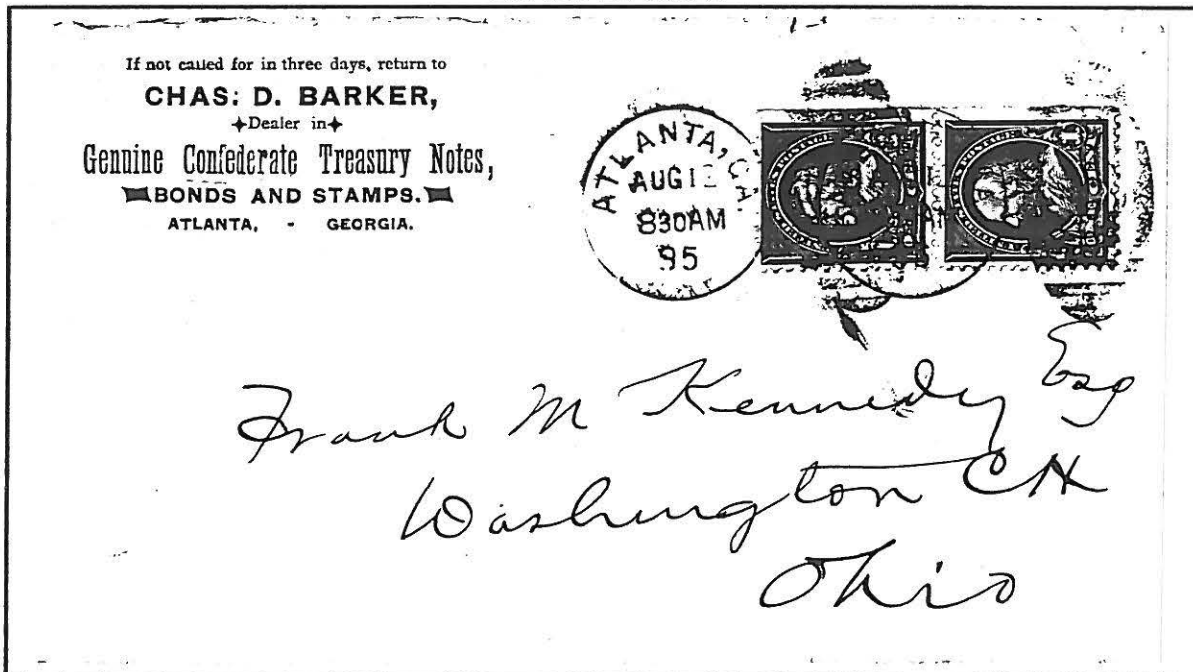 If not called for in three days, return to
CHAS: D. BARKER,
Dealer in
Genuine Confederate Treasury Notes,
BONDS AND STAMPS.
ATLANTA, - GEORGIA.
ATLANTA, GA.
AUG 12
830AM
95
Frank M Kennedy Esq
Washington CH
Ohio